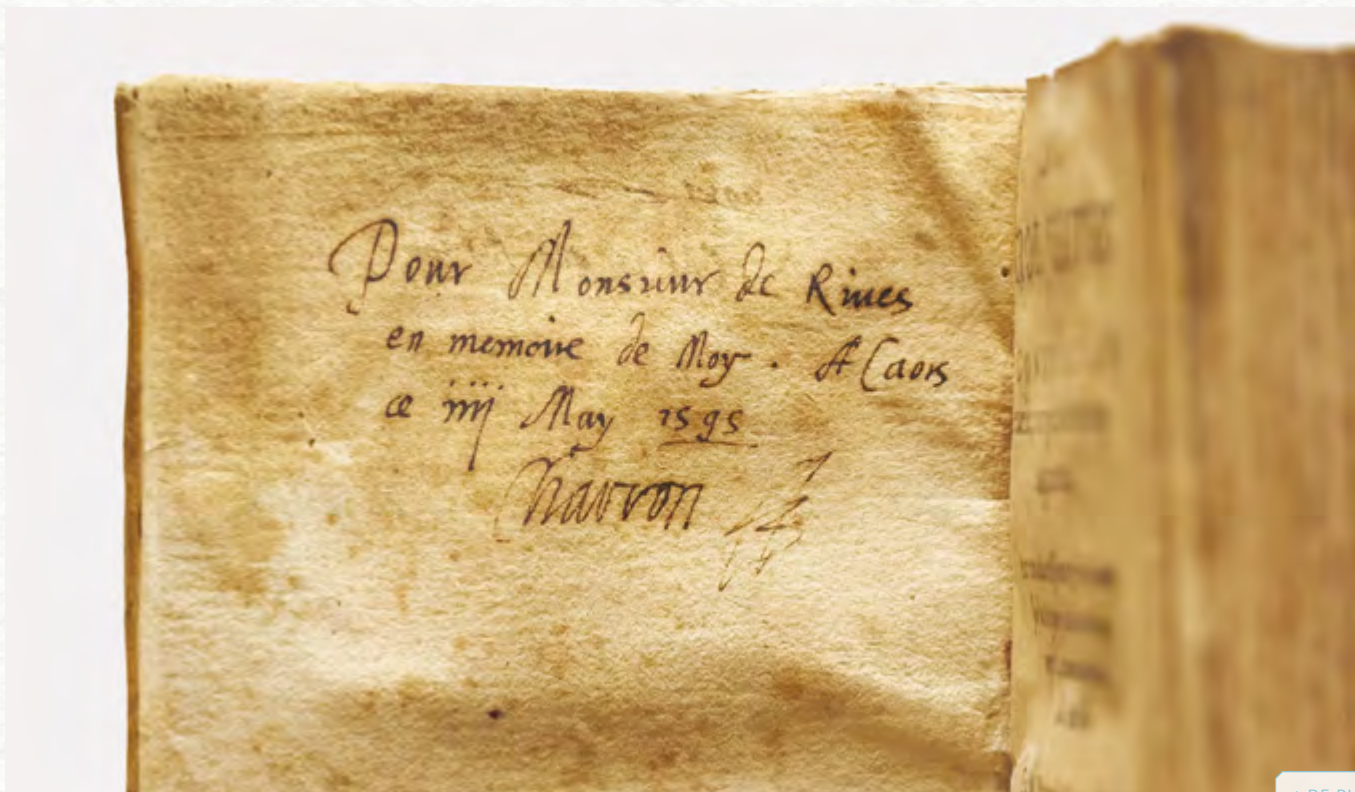 Pour Monsieur de Rives
en memoire de Moy. A Caors
ce iiij May 1595
Charron